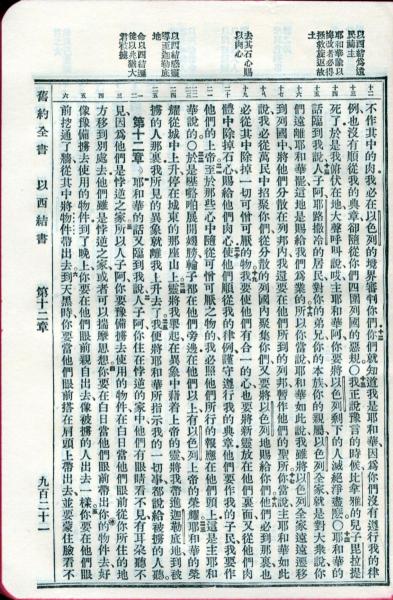 以西結為遺
民禱主
耶和華諭以
悔改者必得
拯救旋返故
土
去其石心賜
以肉心
以西結感靈
導至迦勒底
地
命以西結遷
徙以兆猶大
君被擄
不作其中的肉我必在以色列的境界審判你們你們就知道我是耶和華因為你們沒有遵行我的律
例也沒有順從我的典章卻隨從你們四圍列國的惡規○我正說豫言的時候比拿雅的兒子毘拉提
死了於是我俯伏在地大聲呼叫說哎主耶和華阿你要將以色列剩下的人滅絕淨盡麼○耶和華的
話臨到我說人子阿耶路撒冷的居民對你的弟兄你的本族你的親屬以色列全家就是對大衆說你
們遠離耶和華罷這地是賜給我們為業的所以你當說主耶和華如此說我雖將以色列全家遠遠遷移
到列國中將他們分散在列邦內我還要在他們所到的列邦暫作他們的聖所你當說主耶和華如此
說我必從萬民中招聚你們從分散的列國內聚集你們又要將以色列地賜給你們他們必到那裏也
必從其中除掉一切可憎可厭的物我要使他們有合一的心也要將新靈放在他們裏面又從他們肉
體中除掉石心賜給他們肉心使他們順從我的律例謹守遵行我的典章他們要作我的子民我要作
他們的上帝至於那些心中隨從可憎可厭之物的我必照他們所行的報應在他們頭上這是主耶和
華說的○於是展開翅膀輪子都在他們旁邊在他們以上有以色列上帝的榮耀耶和華的榮
耀從城中上升停在城東的那座山上靈將我舉起在異象中藉着上帝的靈將我帶進迦勒底地到被
擄的人那裏我所見的異象就離我上升去了我便將耶和華所指示我的一切事都說給被擄的人聽
第十二章 耶和華的話又臨到我說人子阿你住在悖逆的家中他們有眼睛看不見有耳朵聽不
見因為他們是悖逆之家所以人子阿你要豫備擄去使用的物件在白日當他們眼前從你所住的地
方移到別處去他們雖是悖逆之家或者可以揣摩思想你要在白日當他們眼前帶出你的物件去好
像豫備擄去使用的物件到了晚上你要在他們眼前親自出去像被擄的人出去一樣你要在他們眼
前挖通了牆從其中將物件帶出去到天黑時你要當他們眼前搭在肩頭上帶出去並要蒙住臉看不
舊約全書 以西結書 第十二章 九百二十一